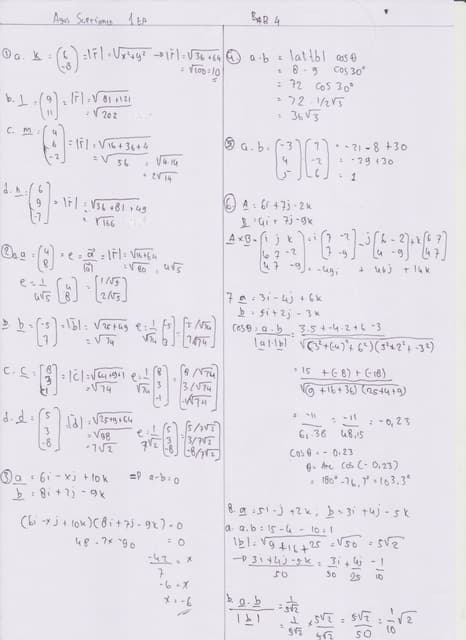 Agus Setiawan 1 EA
BAB 4
① a. k = (6 -8) = |r| = √x²+y² → |r| = √36+64
= √100 = 10
b. l = (9 11) = |r| = √81+121
= √202
c. m = (4 6 -2) = |r| = √16+36+4
= √56 = √4.14
= 2√14
d. n = (6 9 -7) = |r| = √36+81+49
= √166
② a. a = (4 8) = e = a/|a| = |r| = √16+64
= √80 = 4√5
e = 1/4√5 [4 8] = [1/√5 2/√5]
b. b = (-5 7) = |b| = √25+49 e = 1/√74
= √74
c. c = (8 3 -1) = |c| = √64+9+1 e = 1/√74 [8 3 -1] = [8/√74 3/√74 -1/√74]
= √74
d. d = (5 3 -8) = |d| = √25+9+64 e = 1/7√2 [5 3 -8] = [5/7√2 3/7√2 -8/7√2]
= √98
= 7√2
③ a = 6i - xj + 10k => a-b = 0
b = 8i + 7j - 9k
(6i - xj + 10k)(8i + 7j - 9k) = 0
48 - 7x - 90 = 0
-42/7 = x
-6 = x
x = -6
④ a·b = |a||b| cos θ
= 8 · 9 cos 30°
= 72 cos 30°
= 72 · 1/2√3
= 36√3
⑤ a.b = (-3 4 5) (7 -2 6) = -21 - 8 + 30
= -29 + 30
= 1
⑥ A = 6i + 7j - 2k
B = 4i + 7j - 9k
A × B = (i j k 6 7 -2 4 7 -9) = i(7 -2 7 -9) - j(6 -2 4 -9) + k(6 7 4 7)
= -49i + 46j + 14k
7 a = 3i - 4j + 6k
b = 5i + 2j - 3k
cos θ = a.b / |a|.|b| = 3.5 + -4.2 + 6.-3 / √(3²+(-4)²+6²)(5²+2²+-3²)
= 15 + (-8) + (-18) / √(9+16+36)(25+4+9)
= -11 / 61.38 = -11 / 48,15 = -0,23
cos θ = -0,23
θ = Arc cos (-0,23)
= 180° - 76,7° = 103,3°
8. a = 5i - j + 2k, b = 3i + 4j - 5k
a. a.b = 15 - 4 - 10 = 1
|b| = √9+16+25 = √50 = 5√2
→ 3i + 4j - 5k / 50 = 3i/50 + 4j/25 - 1/10
b. a.b / |b| = 1/5√2
= 1/5√2 × 5√2/5√2 = 5√2/50 = 1/10 √2